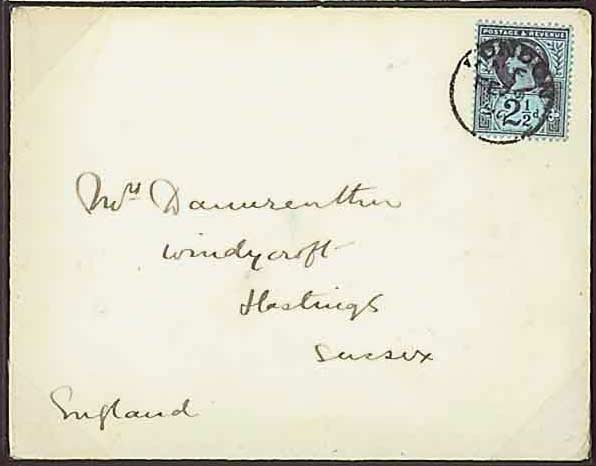 POSTAGE & REVENUE
LONDON
2½d
Mrs Dannreuther
Windycroft
Hastings
Sussex
England